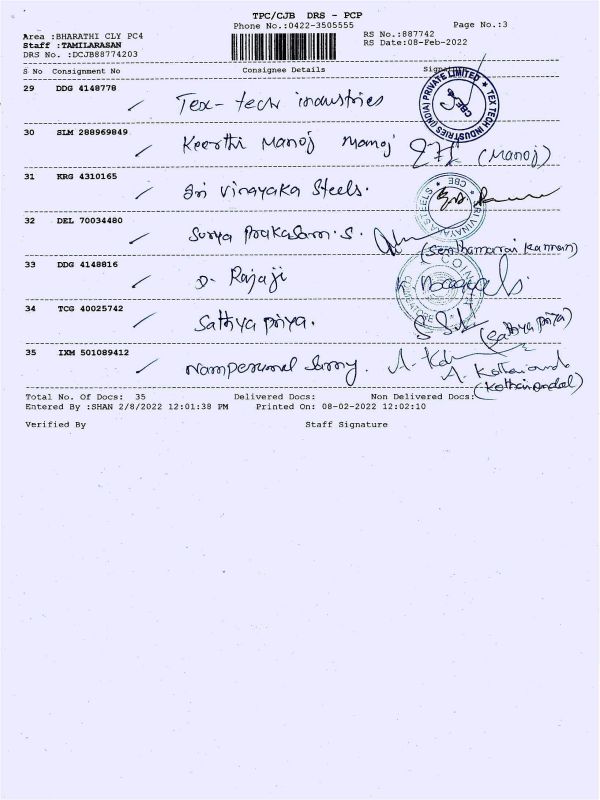 TPC/CJB DRS - PCP
Phone No.:0422-3505555
Page No.:3
Area :BHARATHI CLY PC4
RS No.:887742
Staff :TAMILARASAN
RS Date:08-Feb-2022
DRS No. :DCJB88774203
S No Consignment No Consignee Details Signa
29 DDG 4148778 Tex-tech industries
TEX TECH INDUSTRIES (INDIA) PRIVATE LIMITED ★ CBE
30 SLM 288969849 Keerthi Manoj Manoj (Manoj)
31 KRG 4310165 Sri Vinayaka Steels.
SRI VINAYAKA STEELS ★ CBE
32 DEL 70034480 Surya Prakasam. S. (Senthamarai Kannan)
33 DDG 4148816 D. Rajaji
COIMBATORE
34 TCG 40025742 Sathya priya. (Sathya priya)
35 IXM 501089412 Namperumal Samy. A. Kothaiandal
(Kothaiandal)
Total No. Of Docs: 35 Delivered Docs: Non Delivered Docs:
Entered By :SHAN 2/8/2022 12:01:38 PM Printed On: 08-02-2022 12:02:10
Verified By Staff Signature